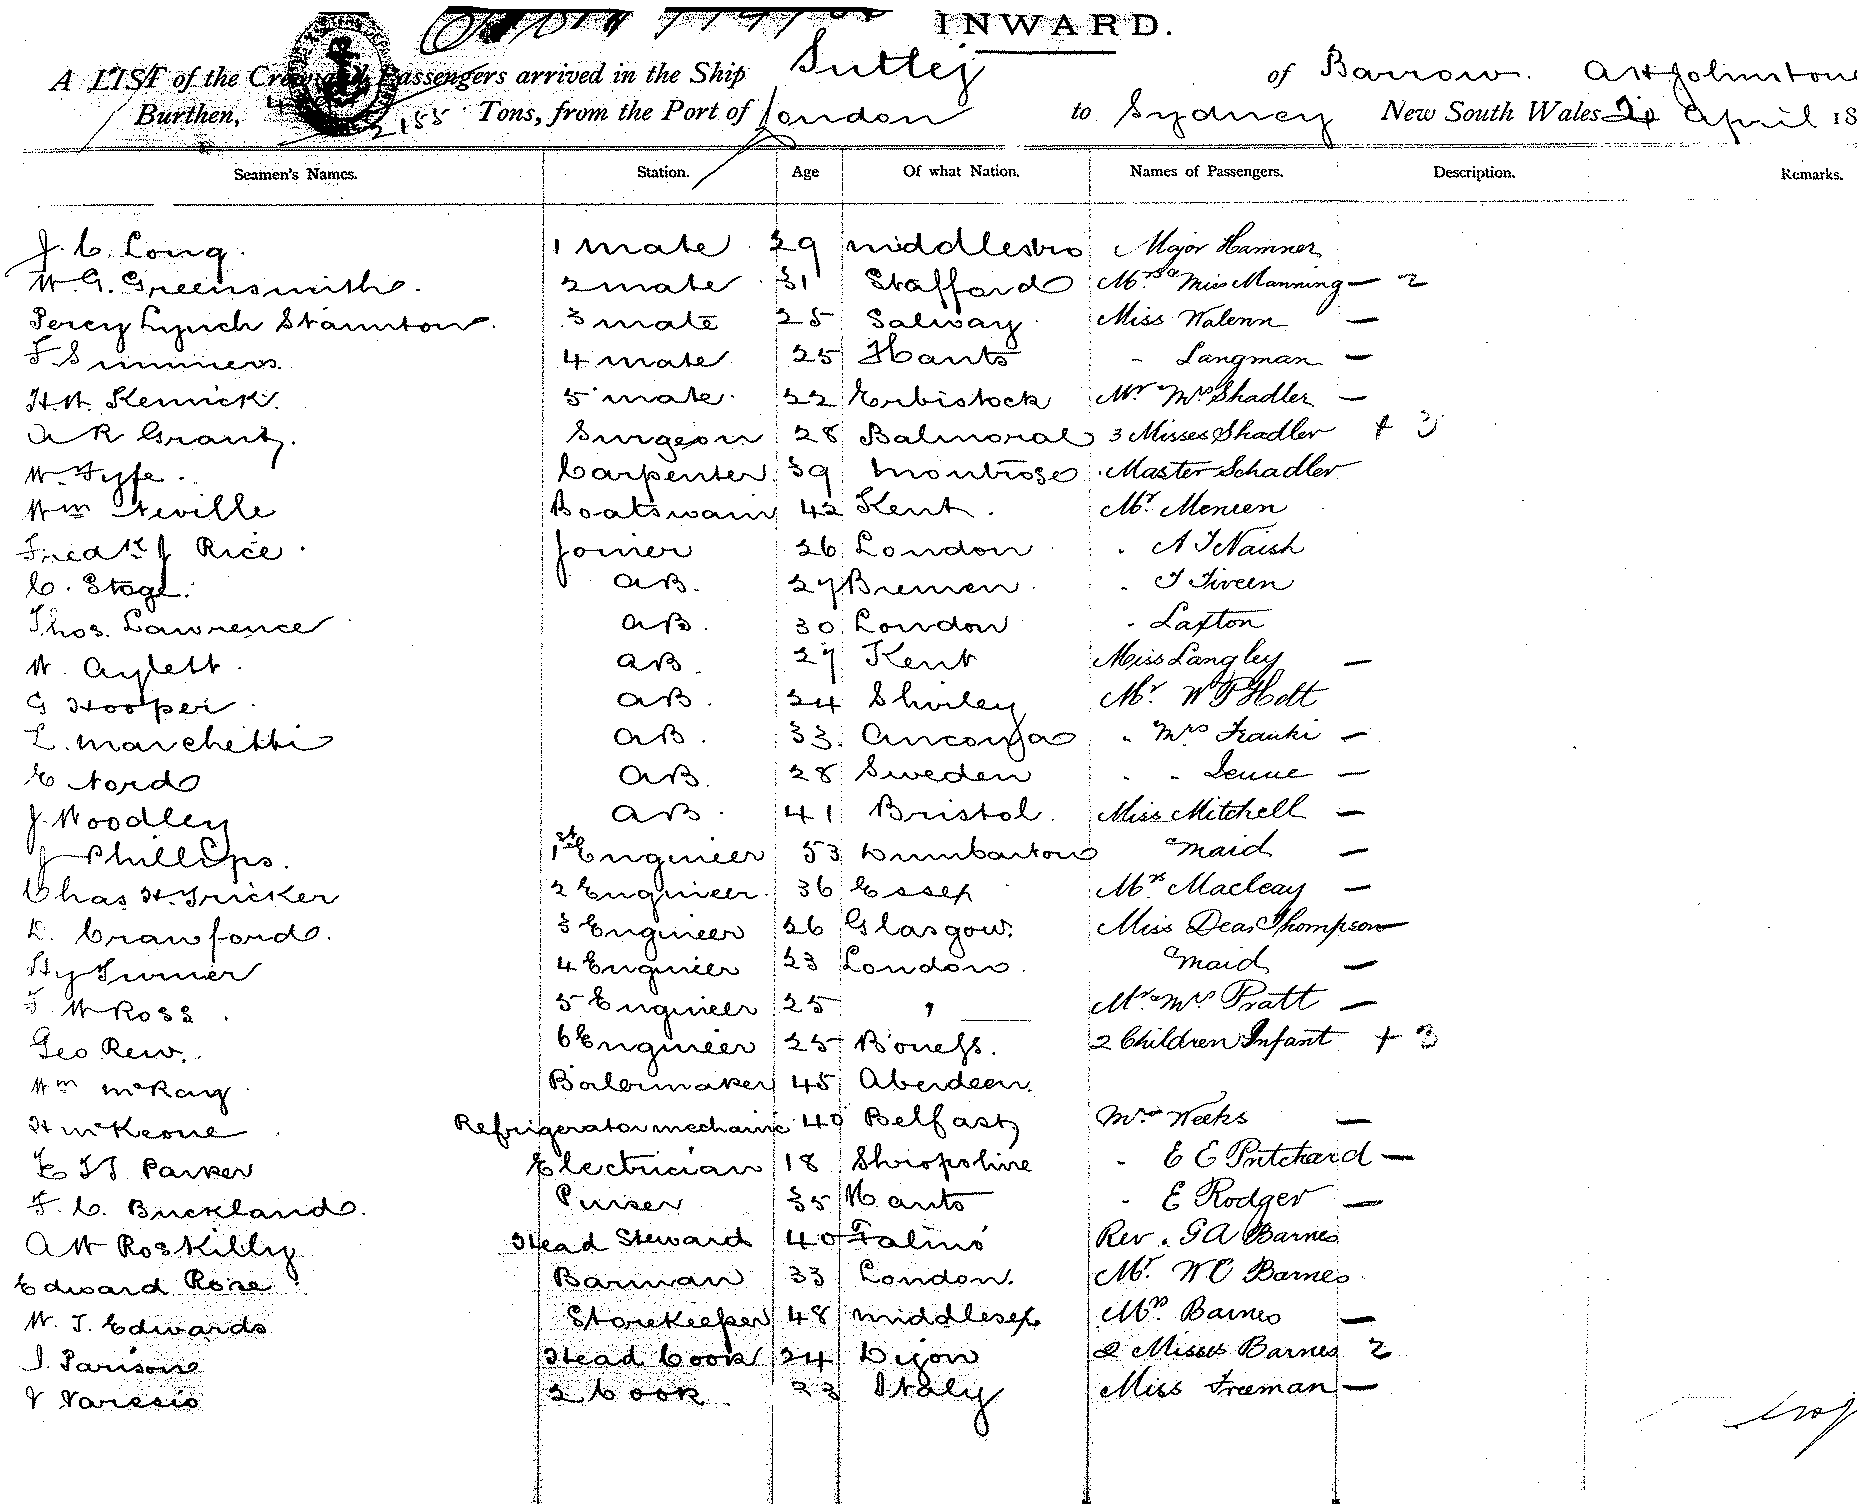 INWARD.
A LIST of the Crew and Passengers arrived in the Ship Sutlej of Barrow. A H Johnston
Burthen, 2155 Tons, from the Port of London to Sydney New South Wales April 18
Seamen's Names. Station. Age Of what Nation. Names of Passengers. Description. Remarks.
J. C. Long. 1 mate 29 middlesbro Major Hamner
W. G. Greensmith. 2 mate 31 Stafford Mrs & Miss Manning — 2
Percy Lynch Staunton. 3 mate 25 Galway Miss Walenn —
F Summers 4 mate 25 Hants " Langman —
H. W. Kenrick. 5 mate 22 Erbistock Mr Mrs Shadler —
A R Grant. Surgeon 28 Balmoral 3 Misses Shadler + 3
W. Fyfe. Carpenter 39 montrose Master Schadler
Wm Neville Boatswain 42 Kent. Mr.
Fredk J Rice Joiner 26 London " A J Naish
C. Stage. AB. 27 Bremen " J Fiveen
Thos. Lawrence AB. 30 London " Laxton
W. Aylett AB. 27 Kent Miss Langley —
G Hooper AB. 24 Shirley Mr. W P Holt
L. Marchetti AB. 33. Ancona " Mrs Franki —
E Nord AB. 28 Sweden " " —
J. Woodley AB. 41 Bristol. Miss Mitchell —
J Phillips. 1st Engineer 53 Dumbarton maid —
Chas H. Tricker 2 Engineer 36 Essex Mrs Macleay —
D. Crawford. 3 Engineer 26 Glasgow. Miss Deas Thompson
Hy Turner 4 Engineer 23 London. maid —
F W Ross. 5 Engineer 25 " Mr & Mrs Pratt —
Geo Rew. 6 Engineer 25 Boness. 2 Children Infant + 3
Wm McKay Boilermaker 45 Aberdeen.
H McKeone Refrigerator mechanic 40 Belfast Mrs Weeks —
E J J Parker Electrician 18 Shropshire " E E Pritchard —
F. C. Buckland. Purser 35 Hants " E Rodger —
A W Roskilly Head Steward 40 Falmo' Rev. G A Barnes
Edward Rose Barman 33 London. Mr. W C Barnes
W. J. Edwards Storekeeper 48 middlesex Mrs Barnes —
J. Parisone Head Cook 24 Dijon 2 Misses Barnes 2
V Varesio 2 Cook 23 Italy Miss Freeman —